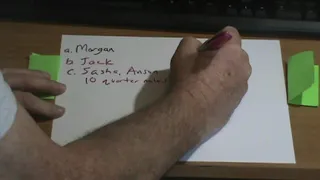 a. Morgan
b Jack
c. Sasha, Anson
10 quarter miles